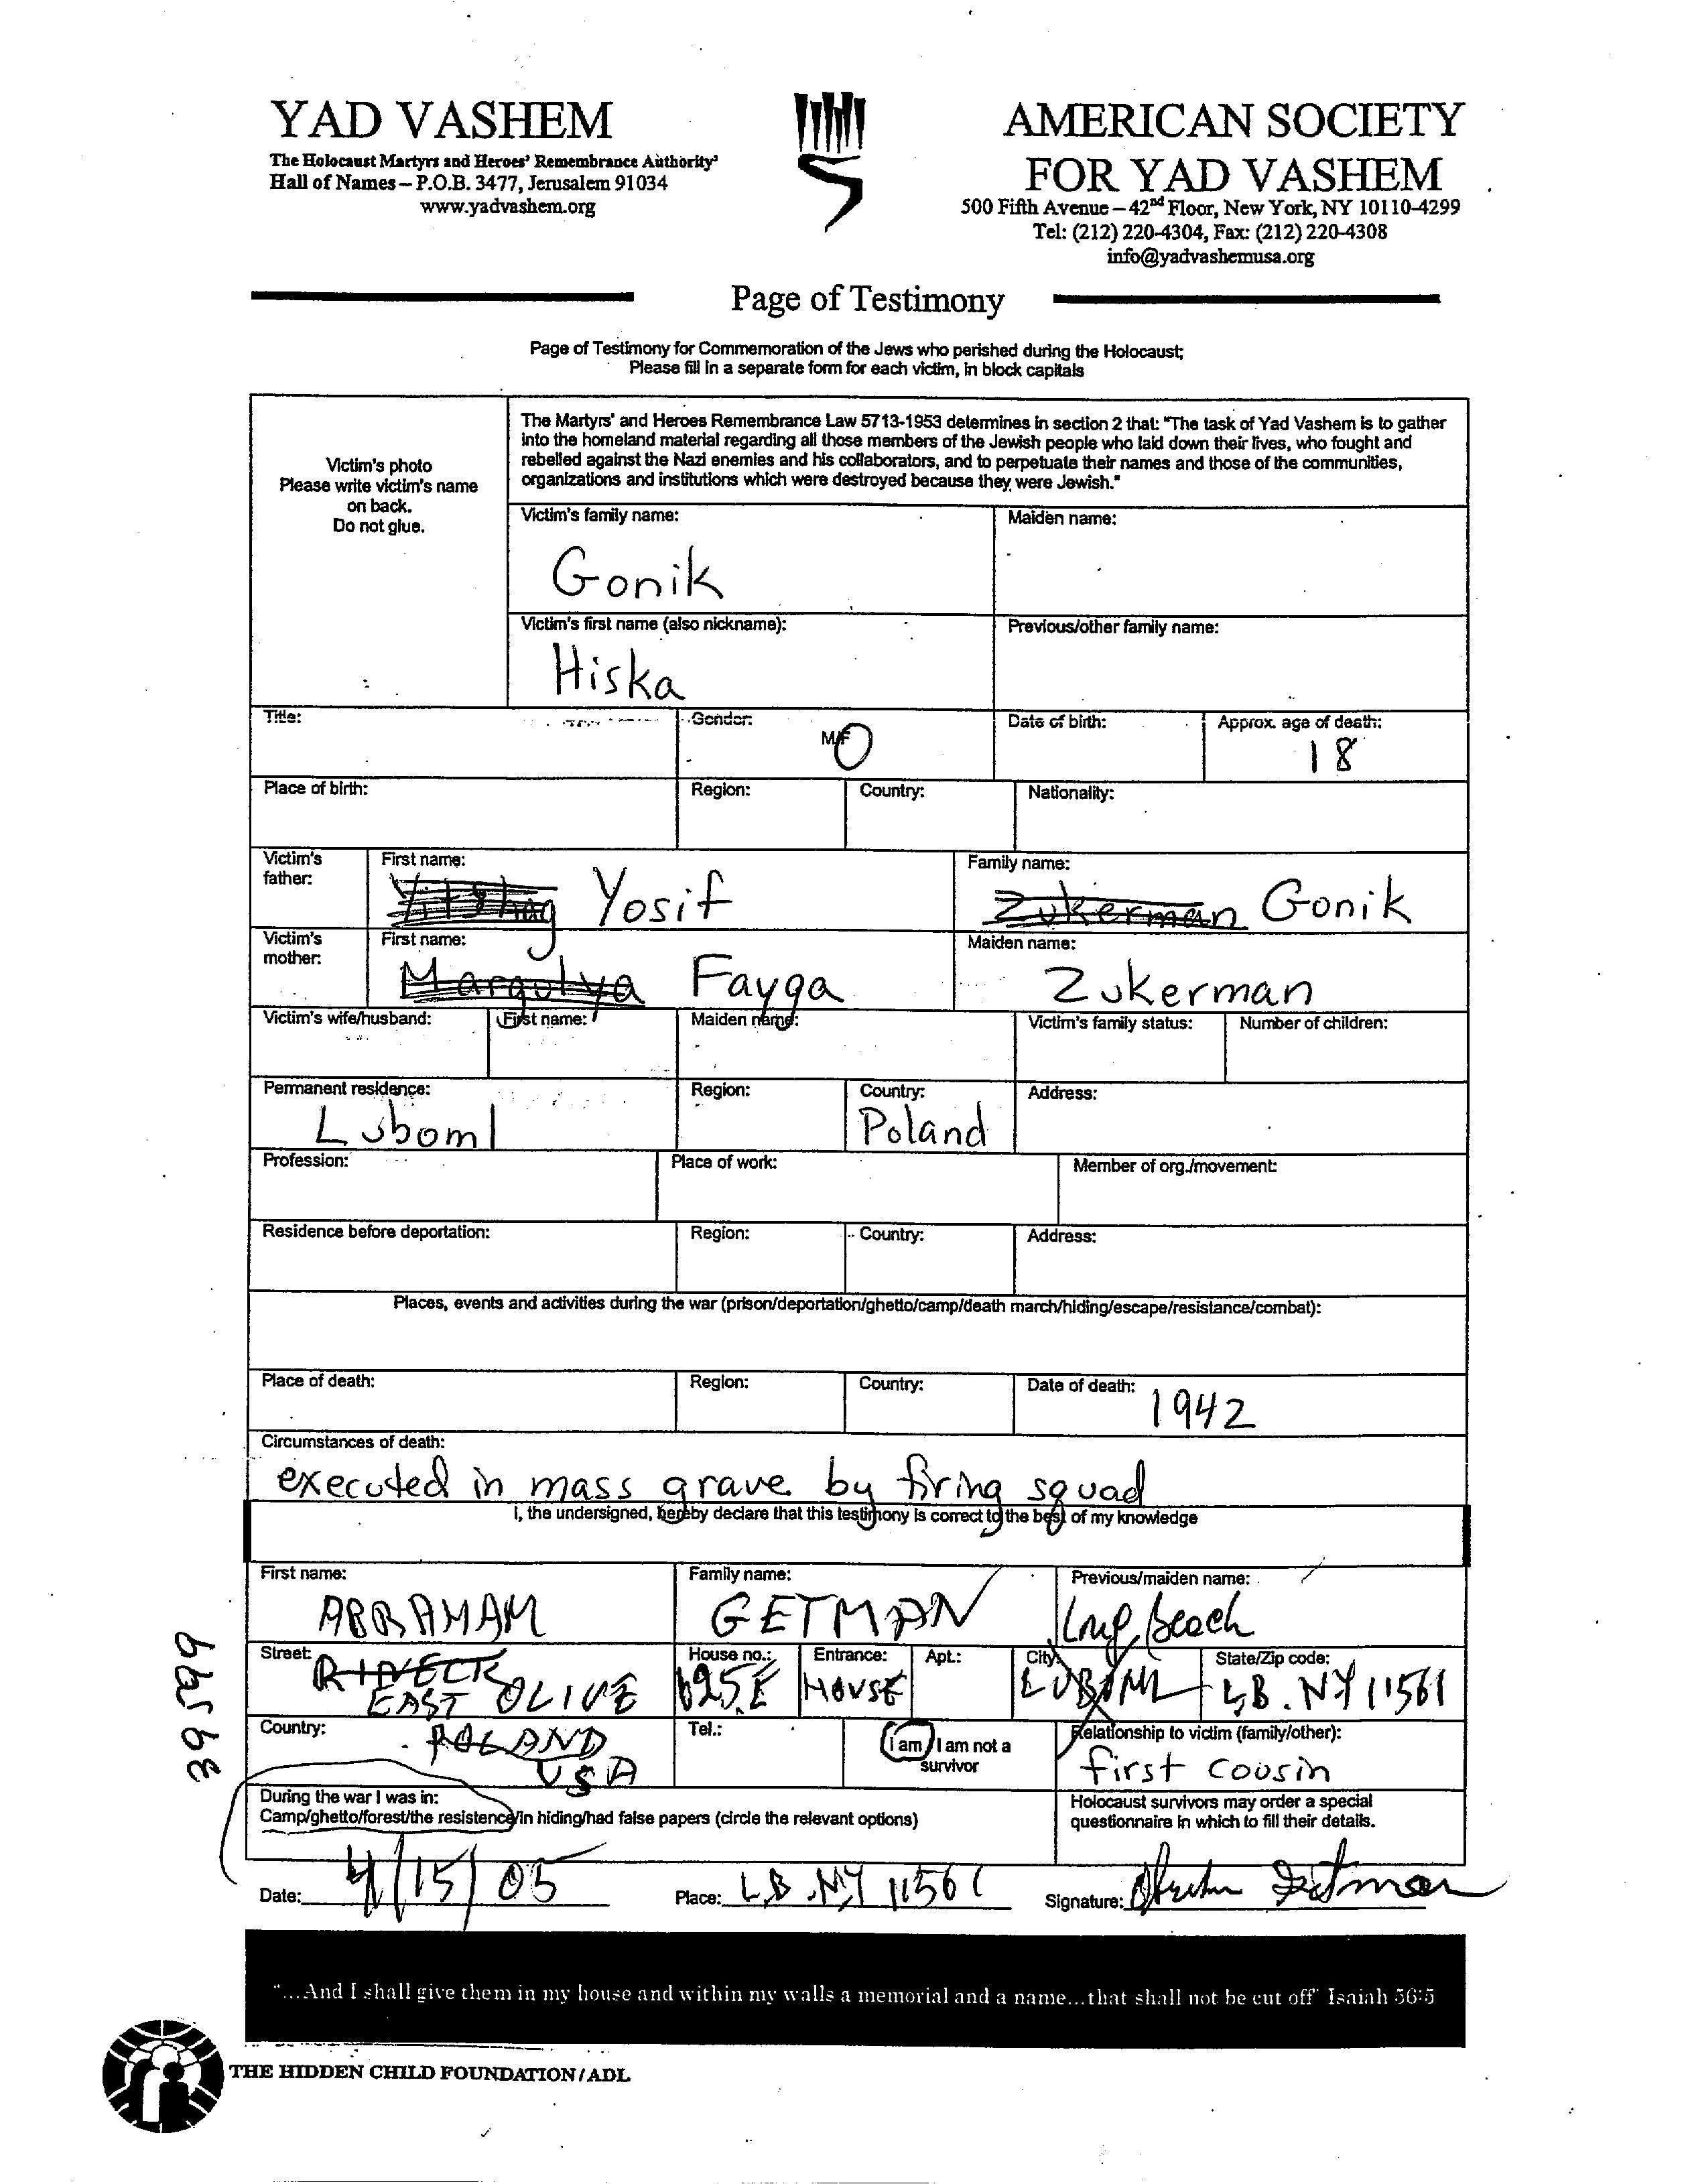 YAD VASHEM
The Holocaust Martyrs and Heroes' Remembrance Authority'
Hall of Names – P.O.B. 3477, Jerusalem 91034
www.yadvashem.org
AMERICAN SOCIETY
FOR YAD VASHEM
500 Fifth Avenue – 42nd Floor, New York, NY 10110-4299
Tel: (212) 220-4304, Fax: (212) 220-4308
info@yadvashemusa.org
Page of Testimony
Page of Testimony for Commemoration of the Jews who perished during the Holocaust;
Please fill in a separate form for each victim, in block capitals
Victim's photo
Please write victim's name
on back.
Do not glue.
The Martyrs' and Heroes Remembrance Law 5713-1953 determines in section 2 that: "The task of Yad Vashem is to gather
into the homeland material regarding all those members of the Jewish people who laid down their lives, who fought and
rebelled against the Nazi enemies and his collaborators, and to perpetuate their names and those of the communities,
organizations and institutions which were destroyed because they were Jewish."
Victim's family name: Maiden name:
Gonik
Victim's first name (also nickname): Previous/other family name:
Hiska
Title: Gender: M/F Date of birth: Approx. age of death:
18
Place of birth: Region: Country: Nationality:
Victim's father: First name: Family name:
Yitzhag Yosif Zukerman Gonik
Victim's mother: First name: Maiden name:
Margulya Fayga Zukerman
Victim's wife/husband: First name: Maiden name: Victim's family status: Number of children:
Permanent residence: Region: Country: Address:
Luboml Poland
Profession: Place of work: Member of org./movement:
Residence before deportation: Region: Country: Address:
Places, events and activities during the war (prison/deportation/ghetto/camp/death march/hiding/escape/resistance/combat):
Place of death: Region: Country: Date of death:
1942
Circumstances of death:
executed in mass grave by firing squad
I, the undersigned, hereby declare that this testimony is correct to the best of my knowledge
First name: Family name: Previous/maiden name:
ABRAHAM GETMAN Long Beach
Street: House no.: Entrance: Apt.: City: State/Zip code:
EAST OLIVE 625 E HOUSE LUBOML L.B. NY 11561
Country: Tel.: I am / I am not a survivor Relationship to victim (family/other):
POLAND
USA first cousin
During the war I was in:
Camp/ghetto/forest/the resistence/in hiding/had false papers (circle the relevant options)
Holocaust survivors may order a special
questionnaire in which to fill their details.
Date: 4/15/05 Place: L.B. NY 11561 Signature: Abraham Getman
"...And I shall give them in my house and within my walls a memorial and a name...that shall not be cut off" Isaiah 56:5
THE HIDDEN CHILD FOUNDATION / ADL